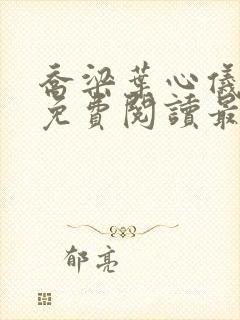 喬梁葉心儀
免費閱讀最
郁亮